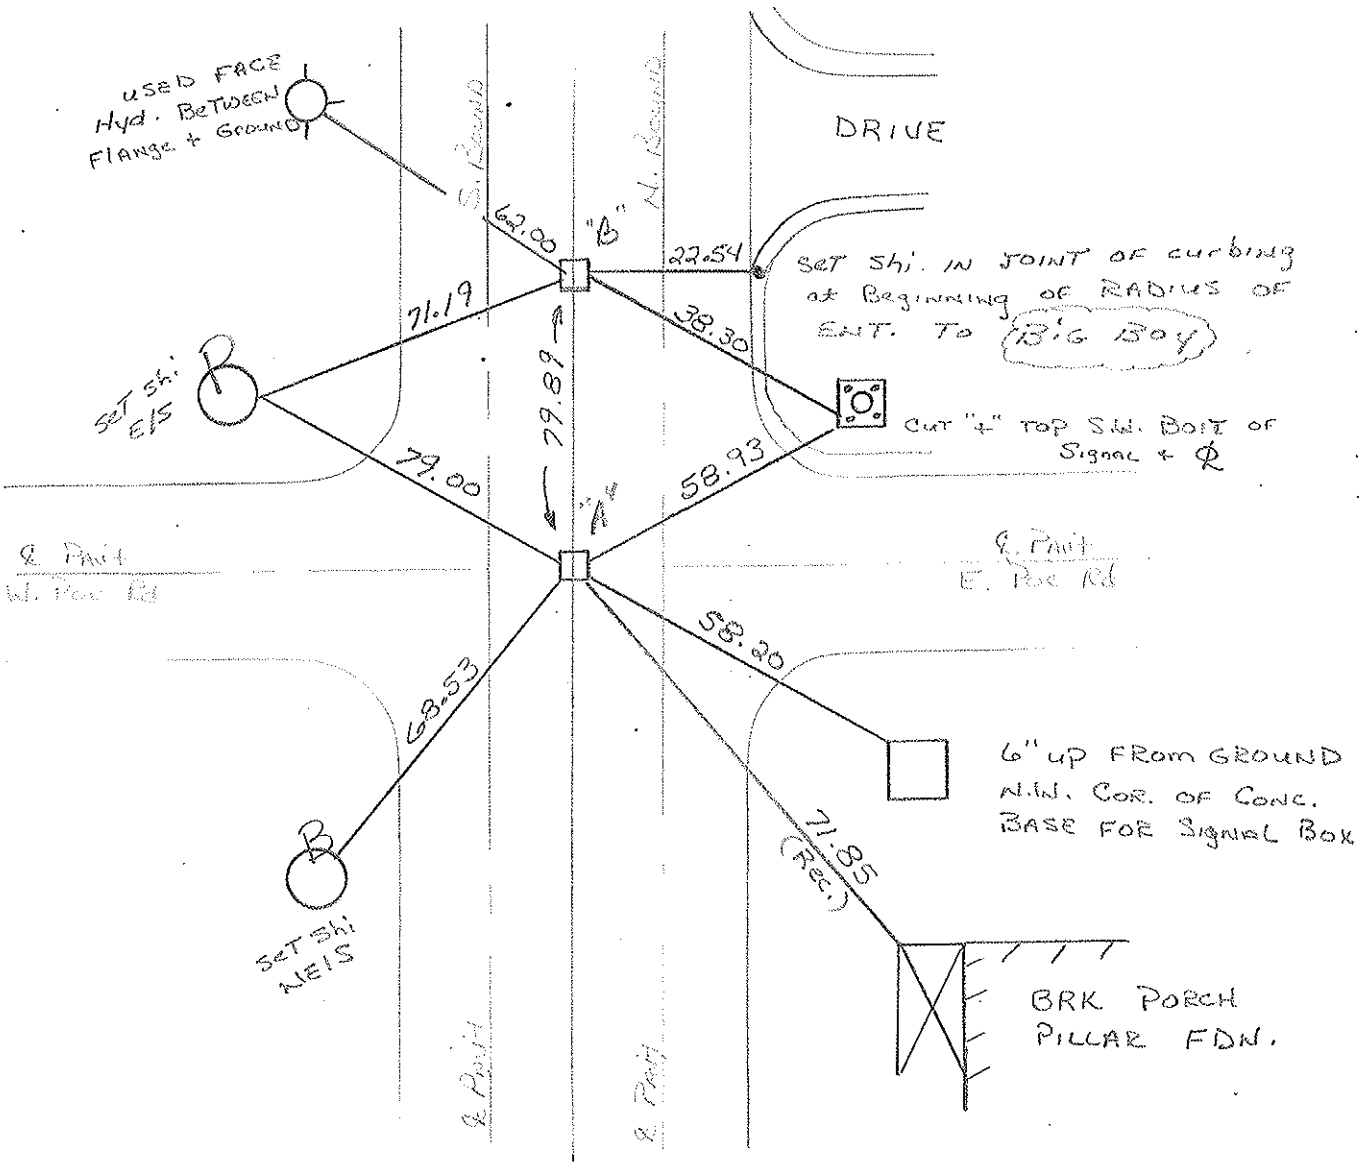 USED FACE
Hyd. BETWEEN
Flange + GROUND
S. Bound
N. Bound
DRIVE
62.00
"B"
22.54
SET Shi. IN JOINT OF curbing
at Beginning OF RADIUS OF
ENT. TO BIG BOY
71.19
38.30
79.89
SET Shi
E/S
CUT "+" TOP S.W. BOLT OF
Signal +
79.00
58.93
"A"
℄ Pav't
W. Poe Rd
℄ Pav't
E. Poe Rd
58.20
68.53
6" up FROM GROUND
N.W. COR. OF CONC.
BASE FOR SIGNAL BOX
71.85
(Rec.)
SET Shi
NE/S
BRK PORCH
PILLAR FDN.
℄ Pav't
℄ Pav't